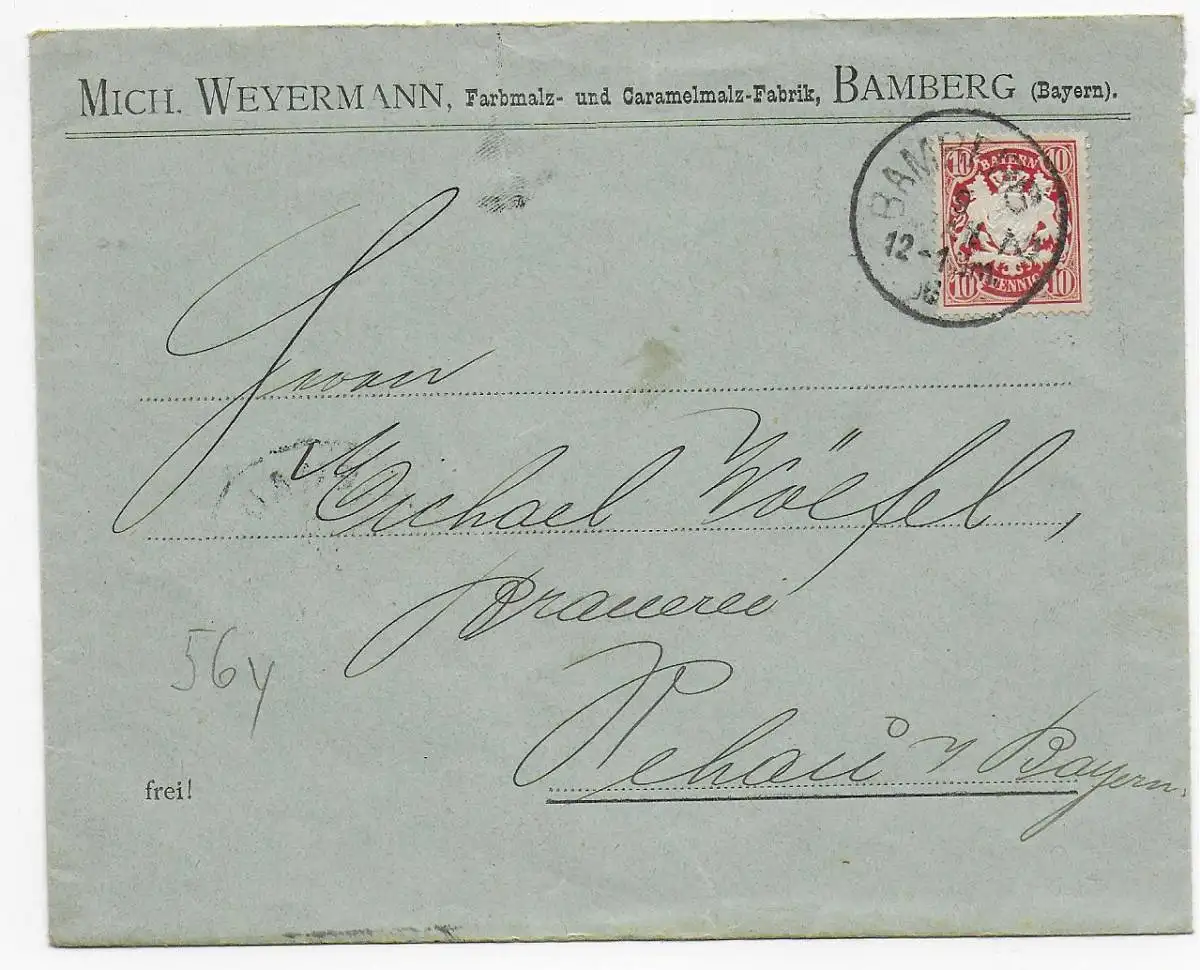 MICH. WEYERMANN, Farbmalz- und Caramelmalz-Fabrik, BAMBERG (Bayern).
10 BAYERN 10
12-1
10 PFENNIG 10
Herrn
Michael Wölfel,
Brauerei
56y
Rehau Bayern.
frei!